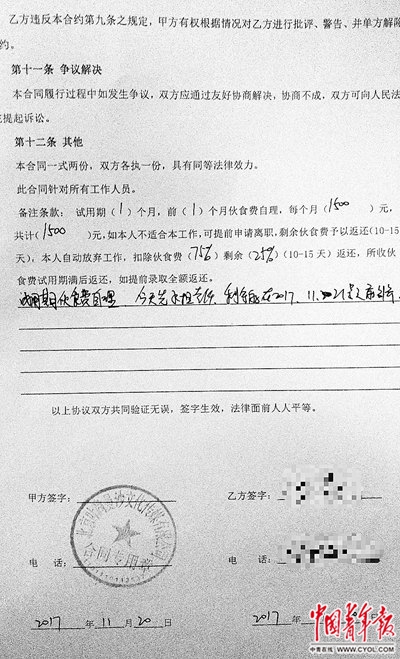 乙方违反本合约第九条之规定，甲方有权根据情况对乙方进行批评、警告、并单方解除
约。
第十一条 争议解决
本合同履行过程中如发生争议，双方应通过友好协商解决，协商不成，双方可向人民法
提起诉讼。
第十二条 其他
本合同一式两份，双方各执一份，具有同等法律效力。
此合同针对所有工作人员。
备注条款：试用期（1）个月，前（1）个月伙食费自理，每个月（1500）元，
共计（1500）元，如本人不适合本工作，可提前申请离职，剩余伙食费予以返还（10-15
天），本人自动放弃工作，扣除伙食费（75%）剩余（25%）（10-15天）返还，所收伙
食费试用期满后返还，如提前录取全额返还。
试用期伙食费自理 今天先 在2017.11. 21
以上协议双方共同验证无误，签字生效，法律面前人人平等。
甲方签字： 乙方签字：
文化传媒有限公司
合同专用章
电 话： 电 话：
2017年11月20日 2017
中国青年报
中青在线 WWW.CYOL.COM